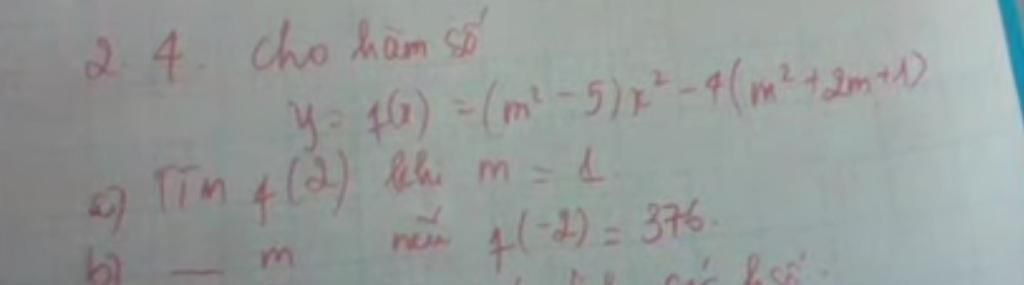 2.4. Cho hàm số
y = f(x) = (m² - 5)x² - 4(m² + 2m + 1)
a) Tìm f(2) khi m = 1.
b) — m nếu f(-2) = 376.